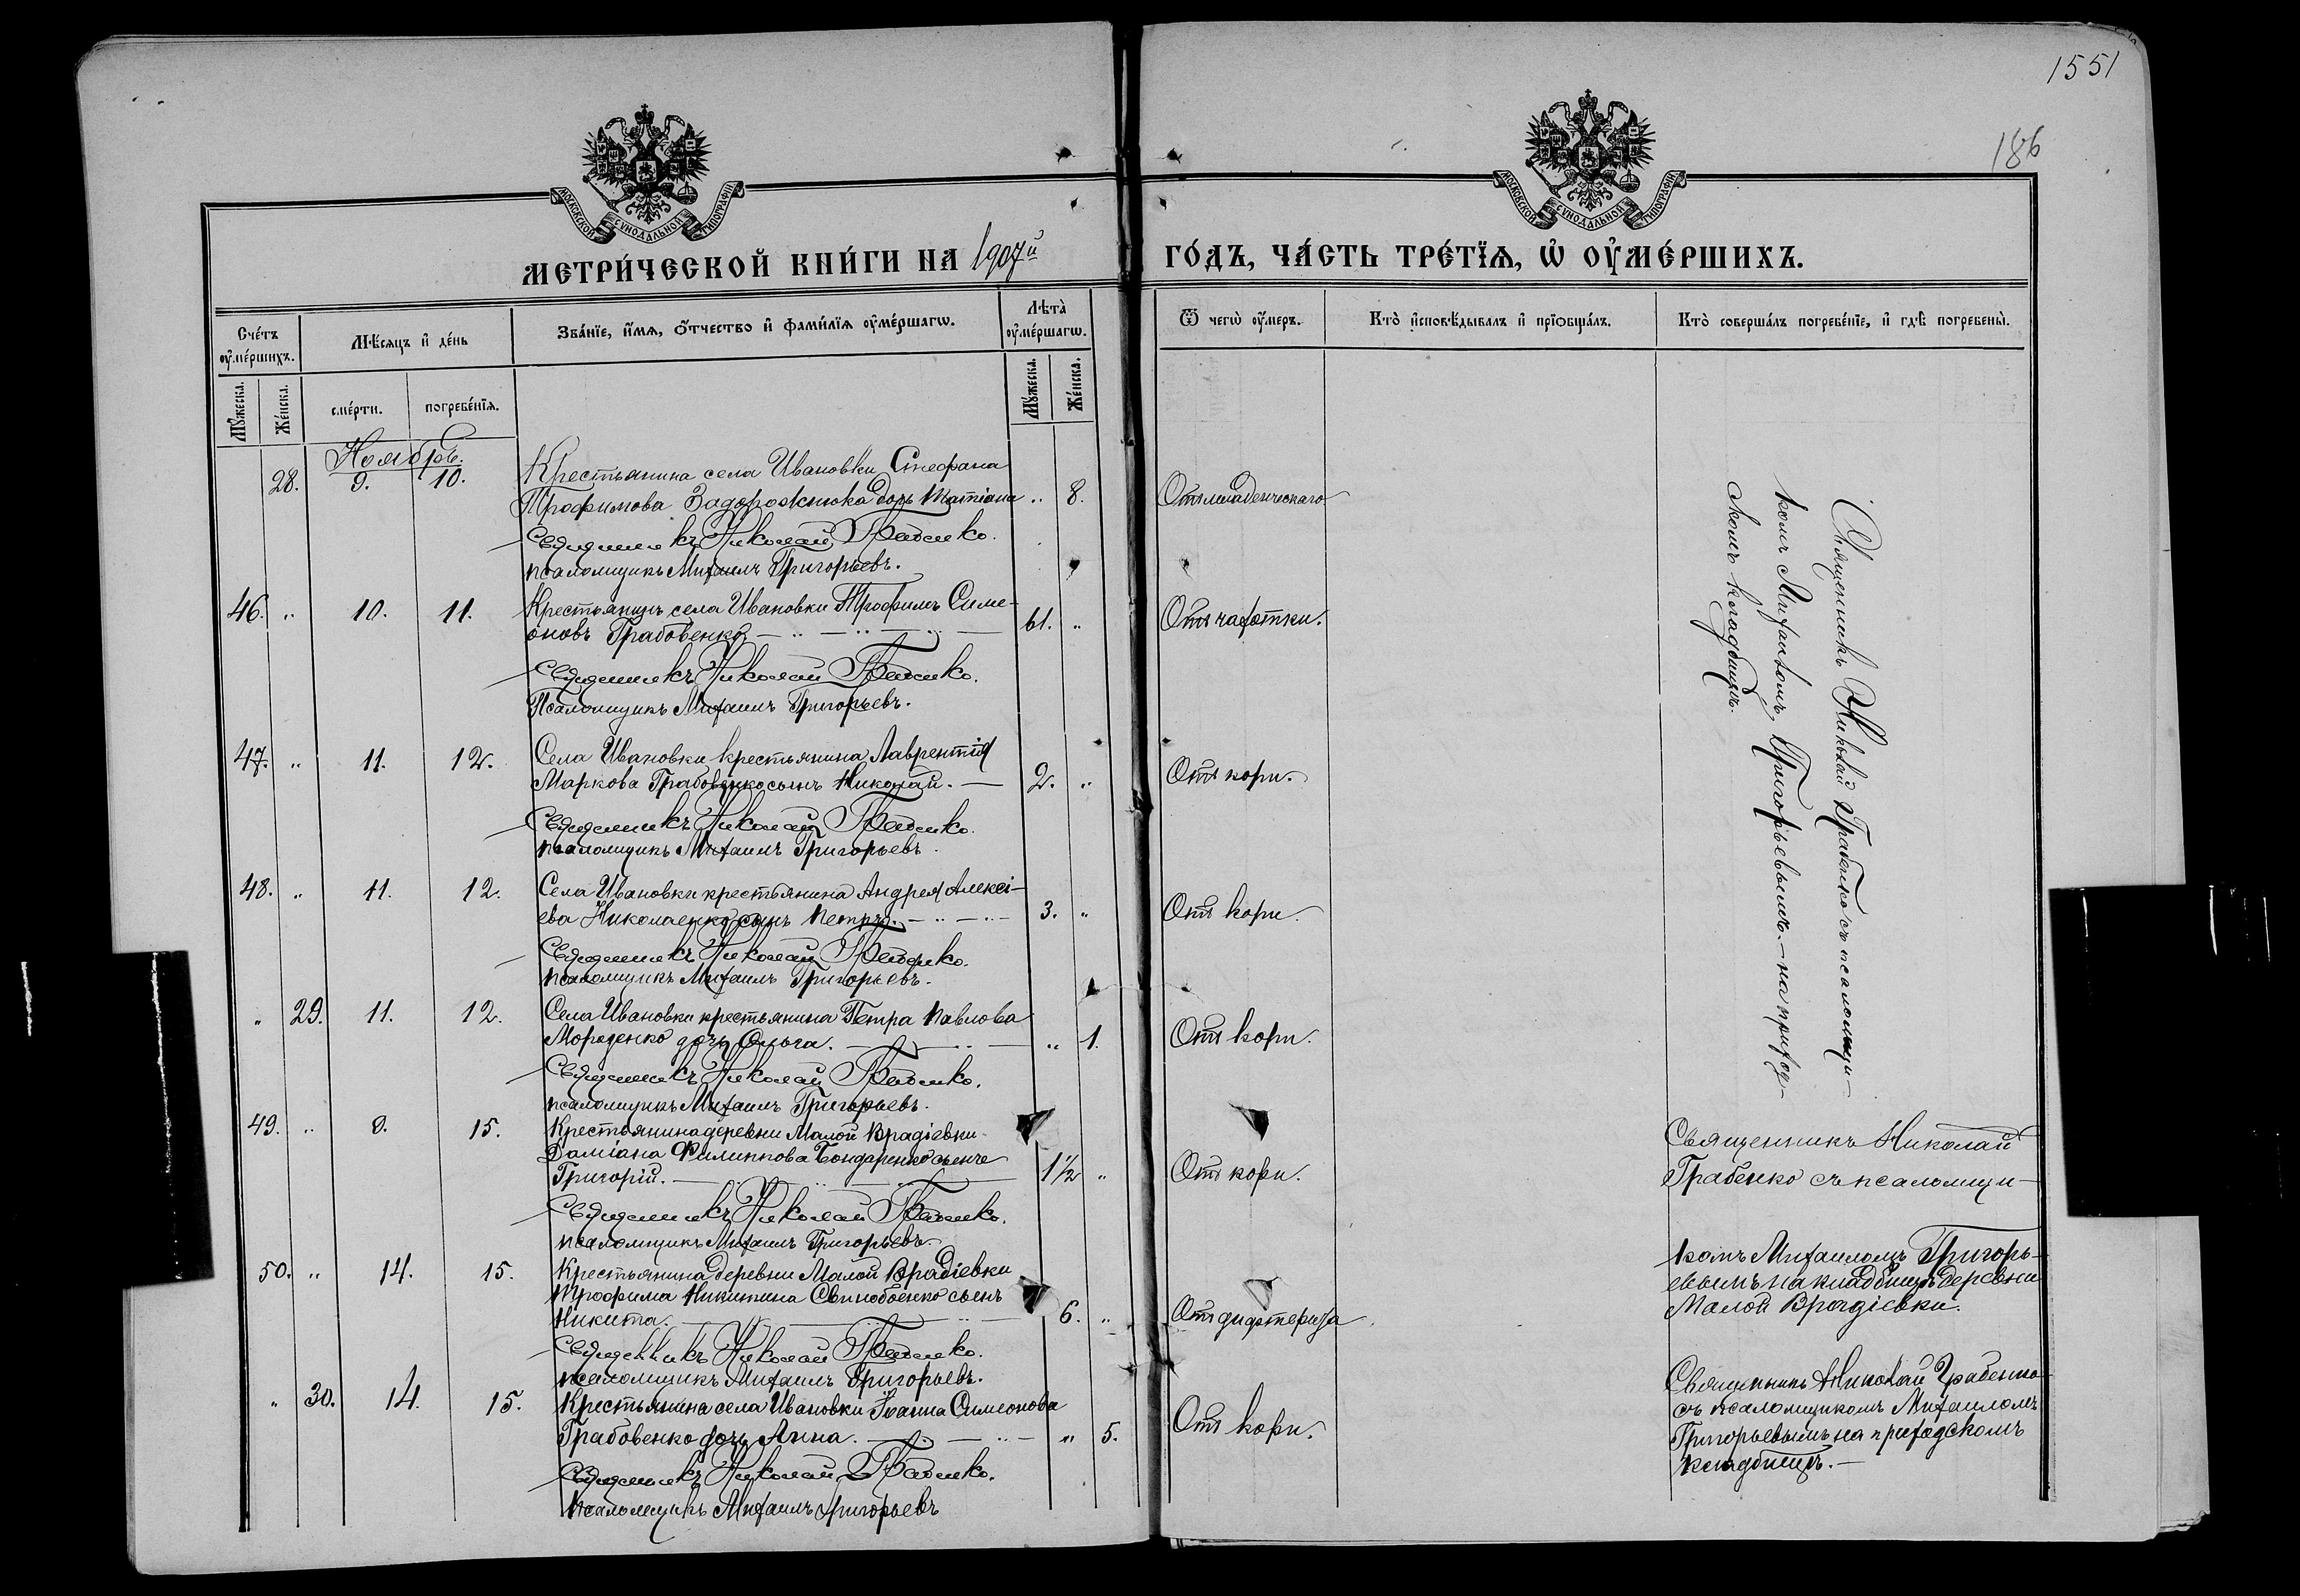 1551
186
МОСКОВСКОЙ СУНОДАЛЬНОЙ ТИПОГРАФІИ
МОСКОВСКОЙ СУНОДАЛЬНОЙ ТИПОГРАФІИ
МЕТРИ́ЧЕСКОЙ КНИ́ГИ НА 1907й ГО́ДЪ, ЧА́СТЬ ТРЕ́ТІѦ, Ѡ ОУМЕ́РШИХЪ.
Счетъ оумершихъ.
Мѣсяцъ и день
Званіе, имя, отчество и фамилія оумершагѡ.
Лѣта оумершагѡ.
Ѿ чегѡ оумеръ.
Кто исповѣдывалъ и пріобщалъ.
Кто совершалъ погребеніе, и гдѣ погребены.
Мужеска.
Женска.
смерти.
погребенія.
Мужеска.
Женска.
Ноябрь.
28. 9. 10. Крестьянина села Ивановки Стефана
Трофимова Задорожнюка дочь Татіана „ 8. Отъ младенческаго
Священникъ Николай Грабенко.
псаломщикъ Михаилъ Григорьевъ.
46. „ 10. 11. Крестьянинъ села Ивановки Трофимъ Симе-
оновъ Грабовенко 61. „ Отъ чахотки.
Священникъ Николай Грабенко.
Псаломщикъ Михаилъ Григорьевъ.
47. „ 11. 12. Села Ивановки крестьянина Лаврентія
Маркова Грабовенко сынъ Николай. 2. „ Отъ кори.
Священникъ Николай Грабенко.
псаломщикъ Михаилъ Григорьевъ.
48. „ 11. 12. Села Ивановки крестьянина Андрея Алексі-
ева Николаенко сынъ Петръ. 3. „ Отъ кори.
Священникъ Николай Грабенко.
псаломщикъ Михаилъ Григорьевъ.
„ 29. 11. 12. Села Ивановки крестьянина Петра Павлова
Морозенко дочь Ольга. „ 1. Отъ кори.
Священникъ Николай Грабенко.
псаломщикъ Михаилъ Григорьевъ.
Священникъ Николай Грабенко съ псаломщи-
комъ Михаиломъ Григорьевымъ. - на приход-
скомъ кладбищѣ.
49. „ 15. Крестьянина деревни Малой Врадіевки
Даміана Филиппова Бондаренко сынъ
Григорій. 1½ „ Отъ кори.
Священникъ Николай Грабенко.
псаломщикъ Михаилъ Григорьевъ.
50. „ 14. 15. Крестьянина деревни Малой Врадіевки
Трофима Никитина Свинобоенко сынъ
Никита. 6. „ Отъ дифтерита
Священникъ Николай Грабенко.
псаломщикъ Михаилъ Григорьевъ.
Священникъ Николай
Грабенко съ псаломщи-
комъ Михаиломъ Григорь-
евымъ на кладбищѣ деревни
Малой Врадіевки.
„ 30. 14. 15. Крестьянина села Ивановки Іоанна Симеонова
Грабовенко дочь Анна. „ 5. Отъ кори.
Священникъ Николай Грабенко.
Псаломщикъ Михаилъ Григорьевъ
Священникъ Николай Грабенко
съ псаломщикомъ Михаиломъ
Григорьевымъ на приходскомъ
кладбищѣ.